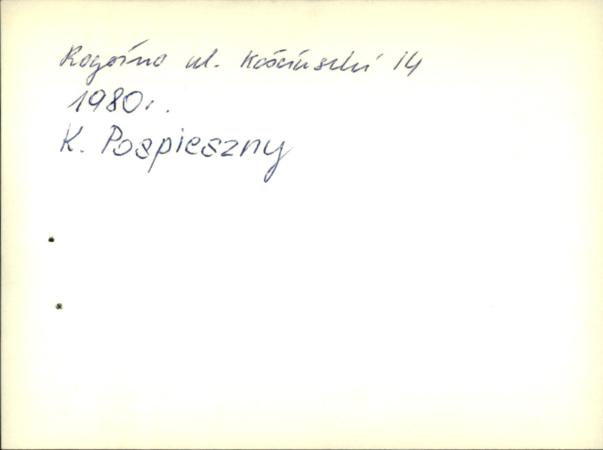 Rogoźno ul. Kościuszki 14
1980r.
K. Pospieszny